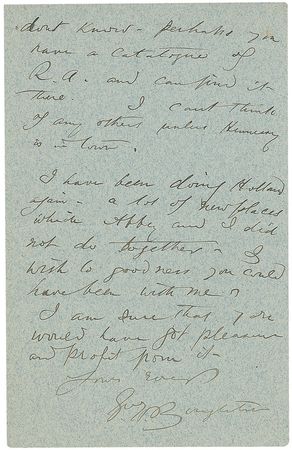 dont know - perhaps you
have a catalogue of
R.A. and can find it
there. I cant think
of any others unless Hennessy
is in town.
I have been doing Holland
again - a lot of new places
which Abbey and I did
not do together - I
wish to goodness you could
have been with me?
I am sure that you
would have got pleasure
and profit from it -
Yours Ever
Geo H Boughton